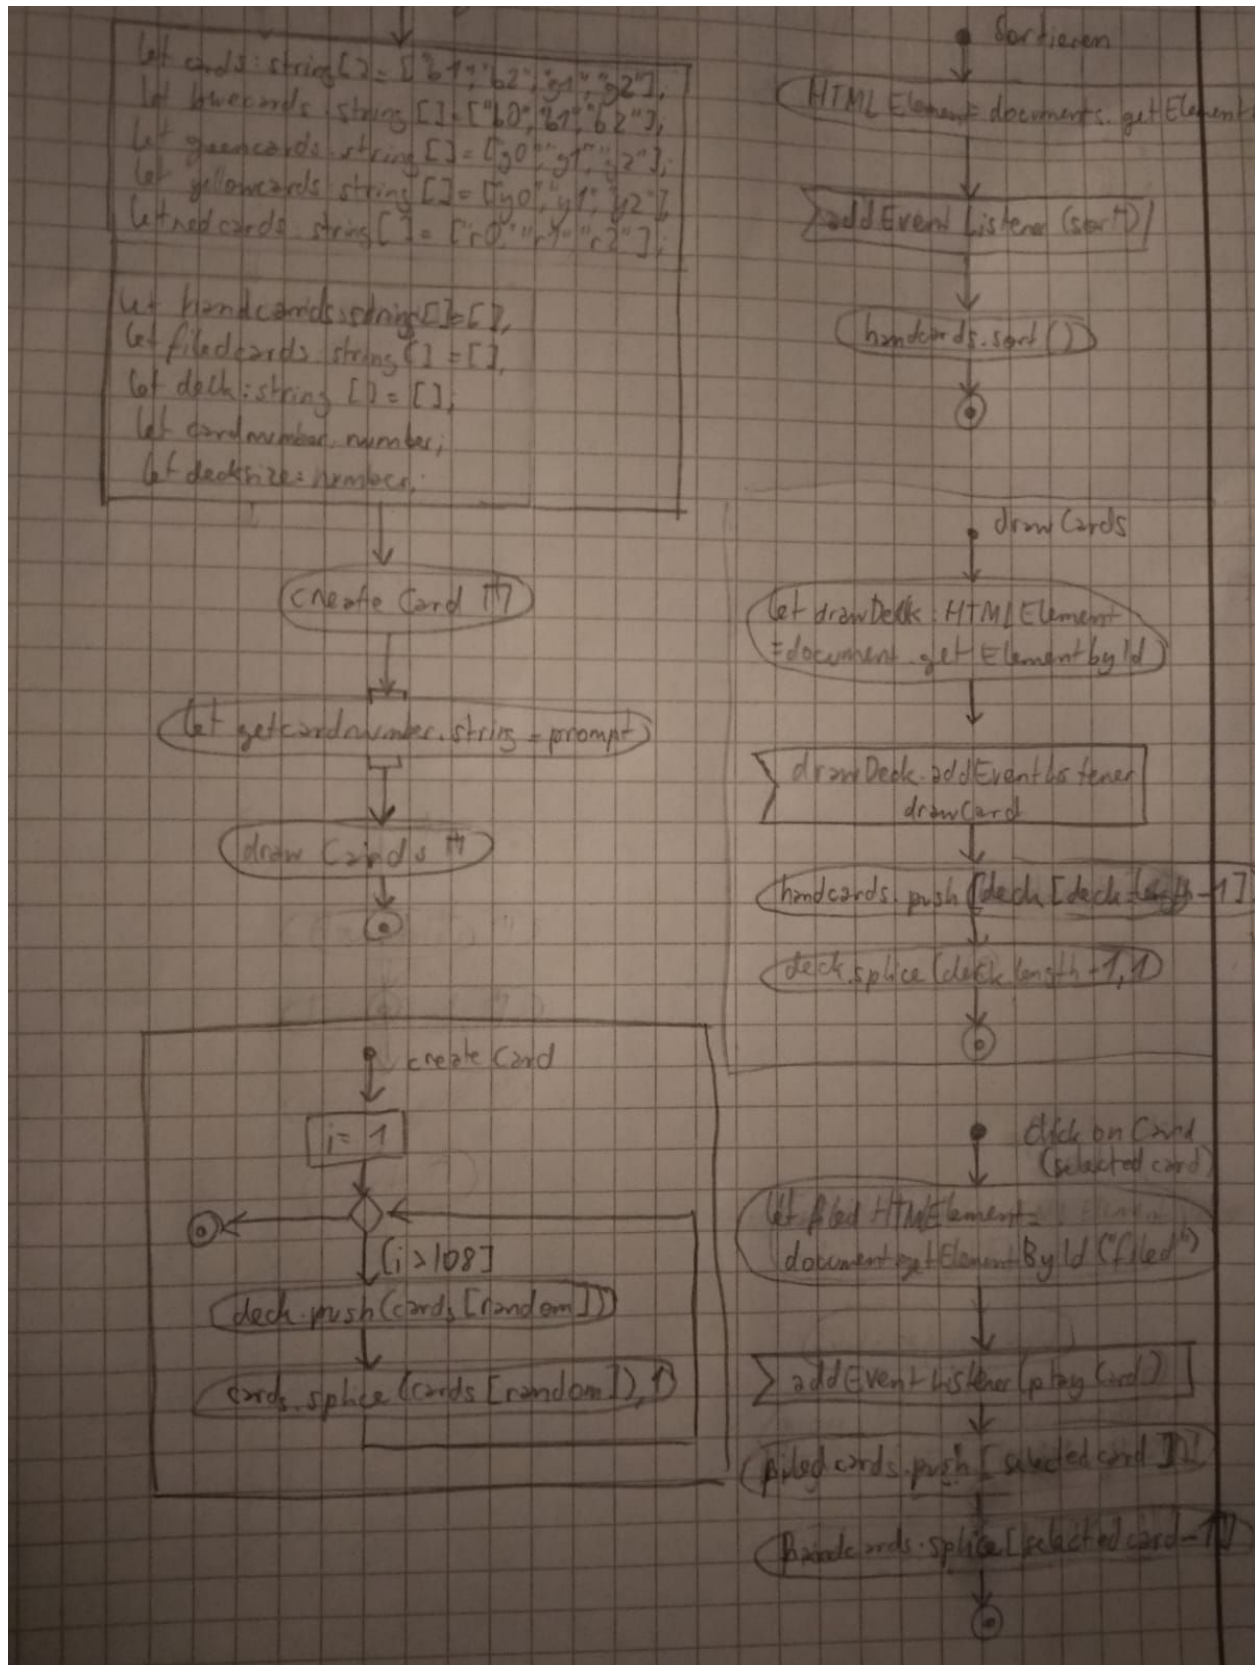 let cards: string[] = ["b1", "b2", "g1", "g2"],
let bluecards: string [] = ["b0", "b1", "b2"];
let greencards: string [] = [g0", "g1", "g2"];
let yellowcards: string [] = ["y0", "y1", "y2"]
let redcards: string [] = ["r0", "r1" "r2"];
let handcards: string[] = [],
let filedcards: string [] = [],
let deck: string [] = [];
let cardnumber: number;
let decksize: number;
create Card
let getcardnumber: string = prompt
draw Cards
create Card
i = 1
[i > 108]
deck.push(cards [random])
cards.splice (cards [random]), 1)
Sortieren
HTML Element = documents.getElement
addEvent Listener (sort)
handcards.sort ()
draw Cards
let drawDeck: HTMLElement
= document.getElementbyId
drawDeck.addEventListener
drawCard
handcards.push (deck [deck length - 1]
deck.splice (deck.length - 1, 1)
click on Card
(selected card)
let filed HTMLElement =
document.getElementById ("filed")
addEventListener (playCard)
filedcards.push [selectedcard])
handcards.splice [selectedcard - 1])